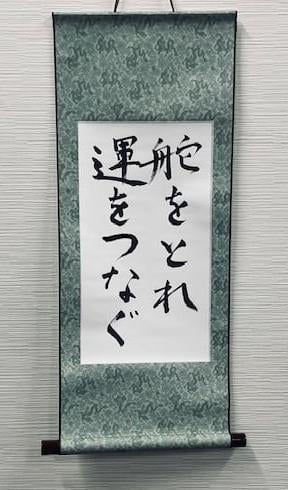 舵をとれ
運をつなぐ